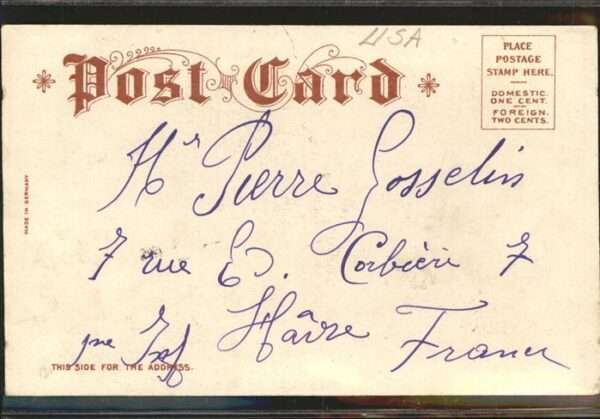 USA
Post Card
PLACE
POSTAGE
STAMP HERE.
DOMESTIC.
ONE CENT.
FOREIGN,
TWO CENTS.
MADE IN GERMANY
Mr Pierre Gosselin
7 rue Ed. Corbière 7
Hâvre France
THIS SIDE FOR THE ADDRESS.